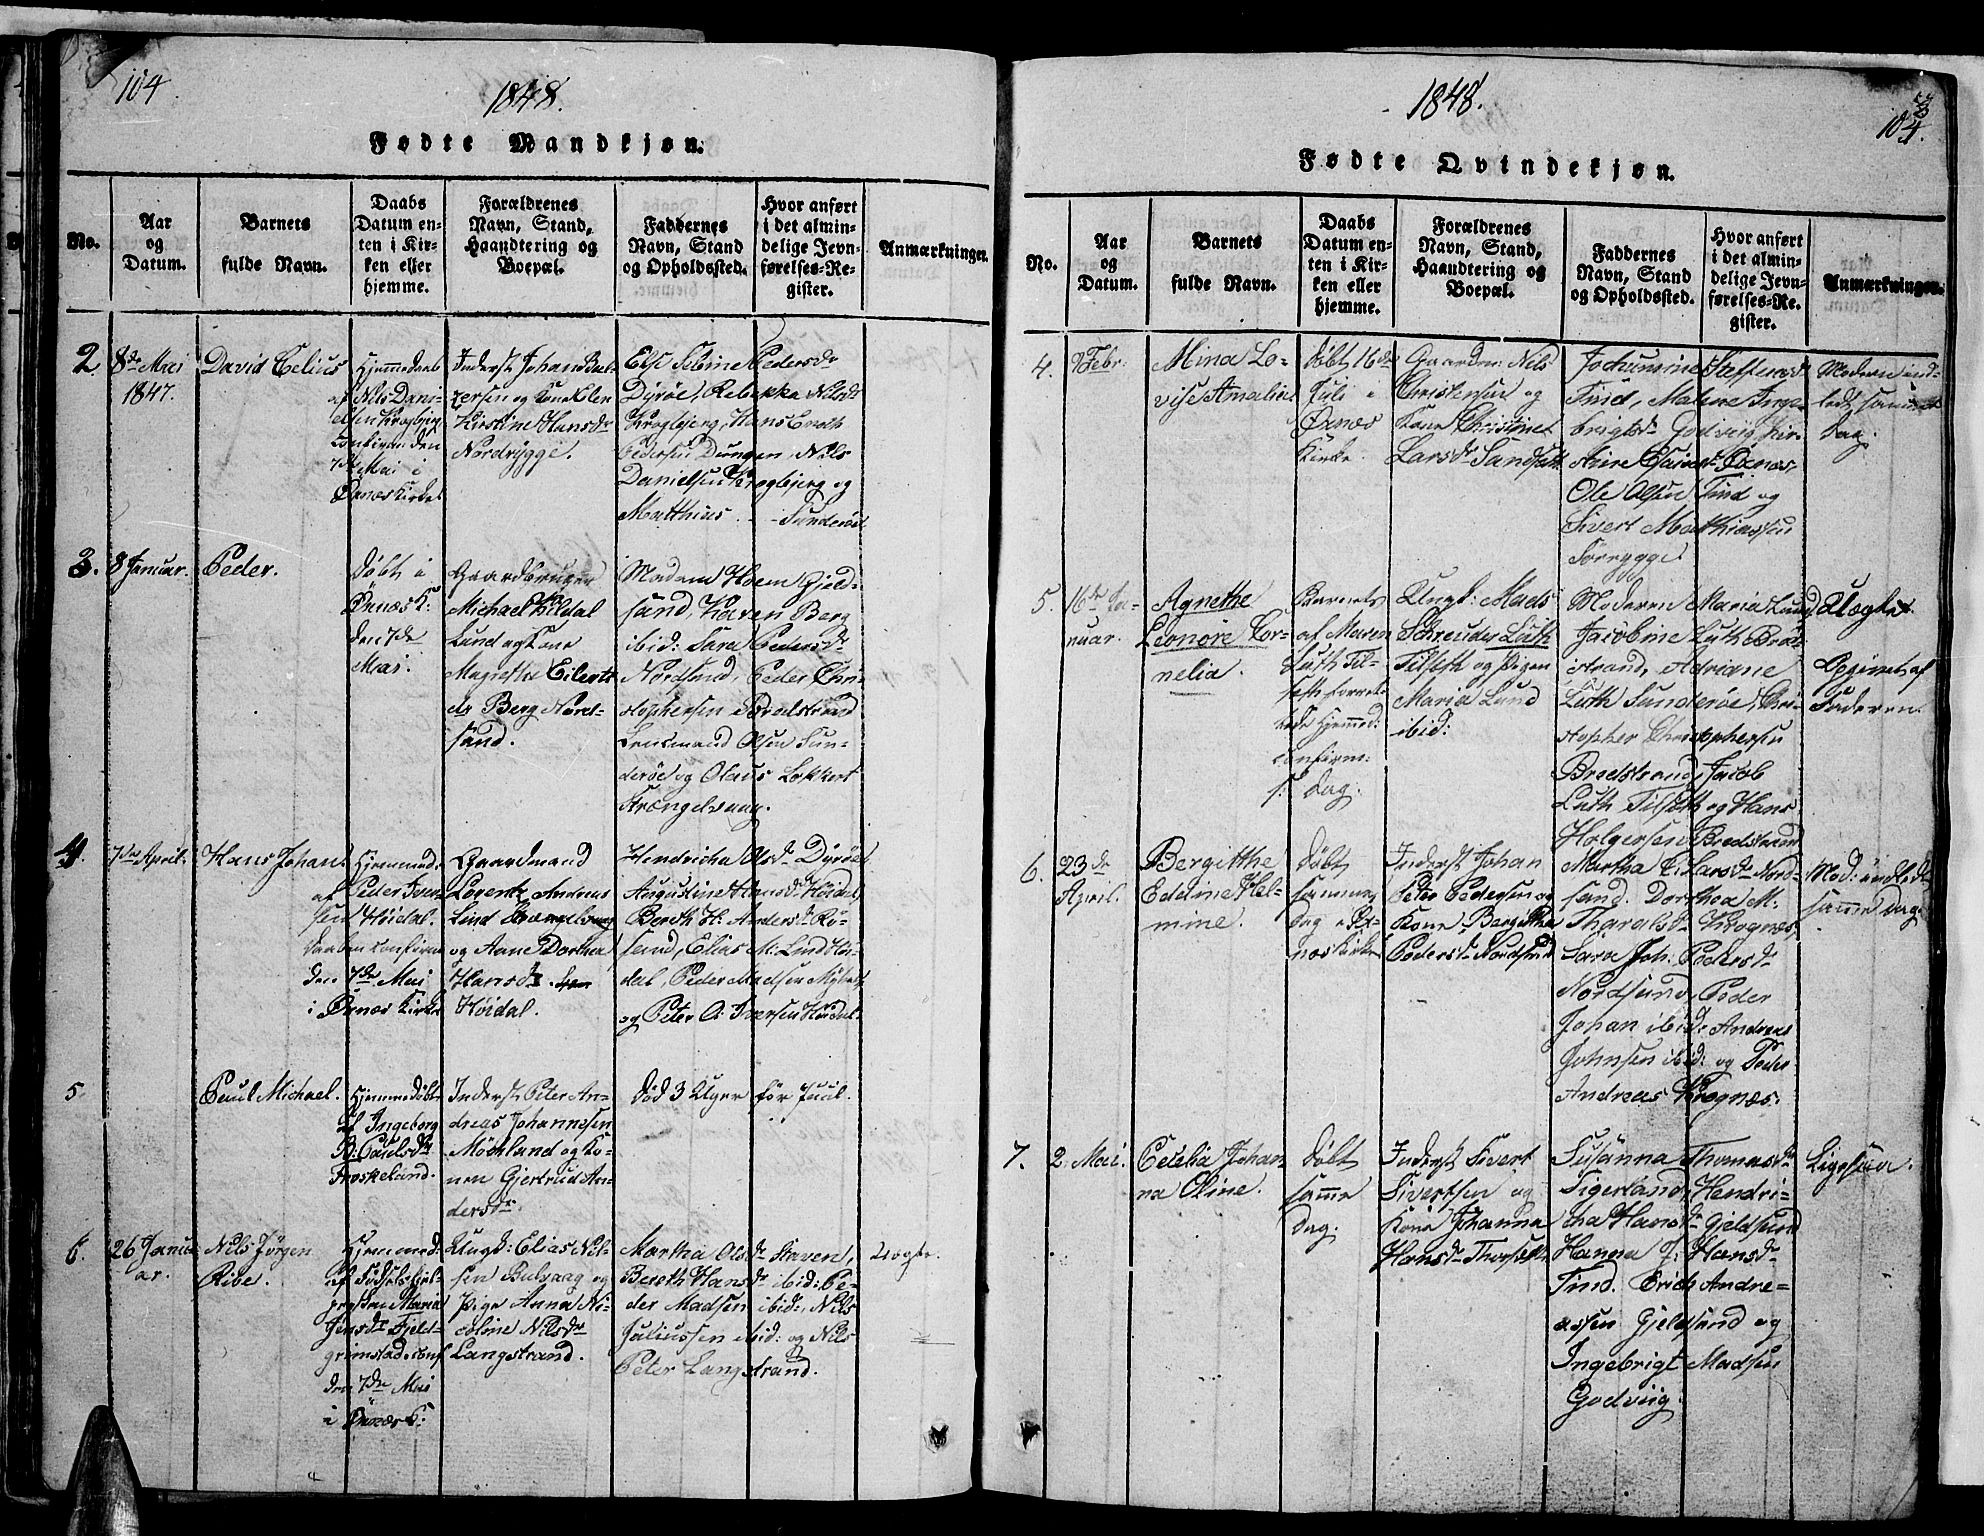 104.
1848.
Fødte Mandkjøn.
No.
Aar
og
Datum.
Barnets
fulde Navn.
Daabs
Datum en-
ten i Kir-
ken eller
hjemme.
Forældrenes
Navn, Stand,
Haandtering og
Boepæl.
Faddernes
Navn, Stand
og Opholdssted.
Hvor anført
i det almin-
delige Jevn-
førelses-Re-
gister.
Anmærkninger.
2.
8de Mai
1847.
David Celius
Hjemmedøbt
af Nils Dani-
elsen Kragbjerg
Confirm: den
7de Mai i
Øxnæs Kirke
Inderst Johan
og Kone Elen
Kirstine Hansdr
Nordrygge.
Else Petersdr
Dyrøe, Rebekka Nilsdr
Kragbjerg, Hans
Pedersen Dungen, Nils
Danielsen Kragbjerg og
Matthius Sunderøe
3.
8 Januar.
Peder.
Døbt i
Øxnæs K:
den 7de
Mai.
Gaardbruger
Michael Kildal
Lund og Kone
Magrethe Eilerts
dr Berg Nord-
sand.
Madam Hoem Gjeld-
sand, Karen Berg
ibid: Sara Pedersdr
Nordsund, Peder Chri-
stophersen Bredstrand
Lensmand Olsen Sun-
derøe og Olaus Lokkert
Strængelvaag.
4.
7de April.
Hans Johan.
Hjemmed:
af Peder Iver-
sen Høidal.
Daaben confirm
den 7de Mai
i Øxnæs Kirke
Gaardmand
Lorentz Andreas
Lind
og Anne Dorthea
Hansdr
Høidal.
Hendricha Olsdr Dyrøe
Augustine Hansdr Høidal
Bereth H: Andersdr Rø-
sund, Elias M: Lind Høi-
dal, Peder Madsen
og Peter A: Iversen Høidal.
5.
Paul Michael.
Hjemmedøbt
af Ingeborg
B: Paulsdr
Froskeland.
Inderst Peter An-
dreas Johannesen
Møckland og Ko-
nen Gjertrud An-
dersdr
Død 3 Uger før Juul.
6.
26 Janu-
ar.
Nils Jørgen
Rive.
Hjemmed:
af Fødselshjel-
persken Maria
Jensdr Fjeld-
grimstad. conf
den 7de Mai
i Øxnæs K:
Ungk: Elias Niel-
sen Bulvaag og
Pige Anna Ni-
coline Nilsdr
Langstrand.
Martha Olsdr Staven,
Bereth Hansdr ibid: Pe-
der Madsen ibid:, Nils
Juliussen ibid: og Nils
Peter Langstrand.
Uægte.
1848.
104.
Fødte Qvindekjøn.
No.
Aar
og
Datum.
Barnets
fulde Navn.
Daabs
Datum en-
ten i Kir-
ken eller
hjemme.
Forældrenes
Navn, Stand,
Haandtering og
Boepæl.
Faddernes
Navn, Stand
og Opholdssted.
Hvor anført
i det almin-
delige Jevn-
førelses-Re-
gister.
Anmærkninger.
4.
Febr.
Mina Lo-
vise Amalie.
Døbt 16de
Juli i
Øxnæs
Kirke.
Gaardm: Nils
Christensen og
Kone Christine
Larsdr Sandset
Jochumine Steffensdr
Tind, Malene Inge-
brigtsdr Godviig
Anne Øxnæs
Ole Olsen Tind og
Sivert Mathiassen
Sørrygge.
Moderen ind-
ledt samme
Dag.
5.
16de Ja-
nuar.
Agnethe
Leonore Cor-
nelia.
Barnets
af Maren
Luth Til-
seth forret-
tede Hjemmed:
confirm:
s: Dag.
Ungk: Mads
Schrøder Luth
Tilseth og Pigen
Maria Lund
ibid:
Moderen Maria Lund
Jacobine Luth Bred-
strand, Adriane
Luth Sunderøe, Chri-
stopher Christophersen
Bredstrand, Jacob
Luth Tilseth og Hans
Holgersen Bredstrand
Uægte.
Opgivet af
Faderen.
6.
23de
April.
Bergitthe
Edeline Hel-
mine.
Døbt
samme
Dag i Øx-
næs Kirke
Inderst Johan
Peter Pedersen og
Kone Bergitha
Pedersdr Nordsund
Martha E: Larsdr Nord-
sand. Dorthea M:
Tharalsdr Krognæs,
Sara Joh: Pedersdr
Nordsund, Peder
Johan ibid: Andreas
Johnsen ibid: og Peder
Andreas Krognæs.
Mod: indledt
samme Dag
7.
2. Mai.
Cecelia Johan-
na Oline.
Døbt
samme
Dag.
Inderst Sivert
Sivertsen og
Kone Johanna
Hansdr Thorseth
Susanna Thomasdr
Tigerland, Hendri-
cha Hansdr Gjeldsund
Hanna J: Hansdr
Tind. Erich Andre-
assen Gjeldsund og
Ingebrigt Madsen
Godviig.
Ligesaa.